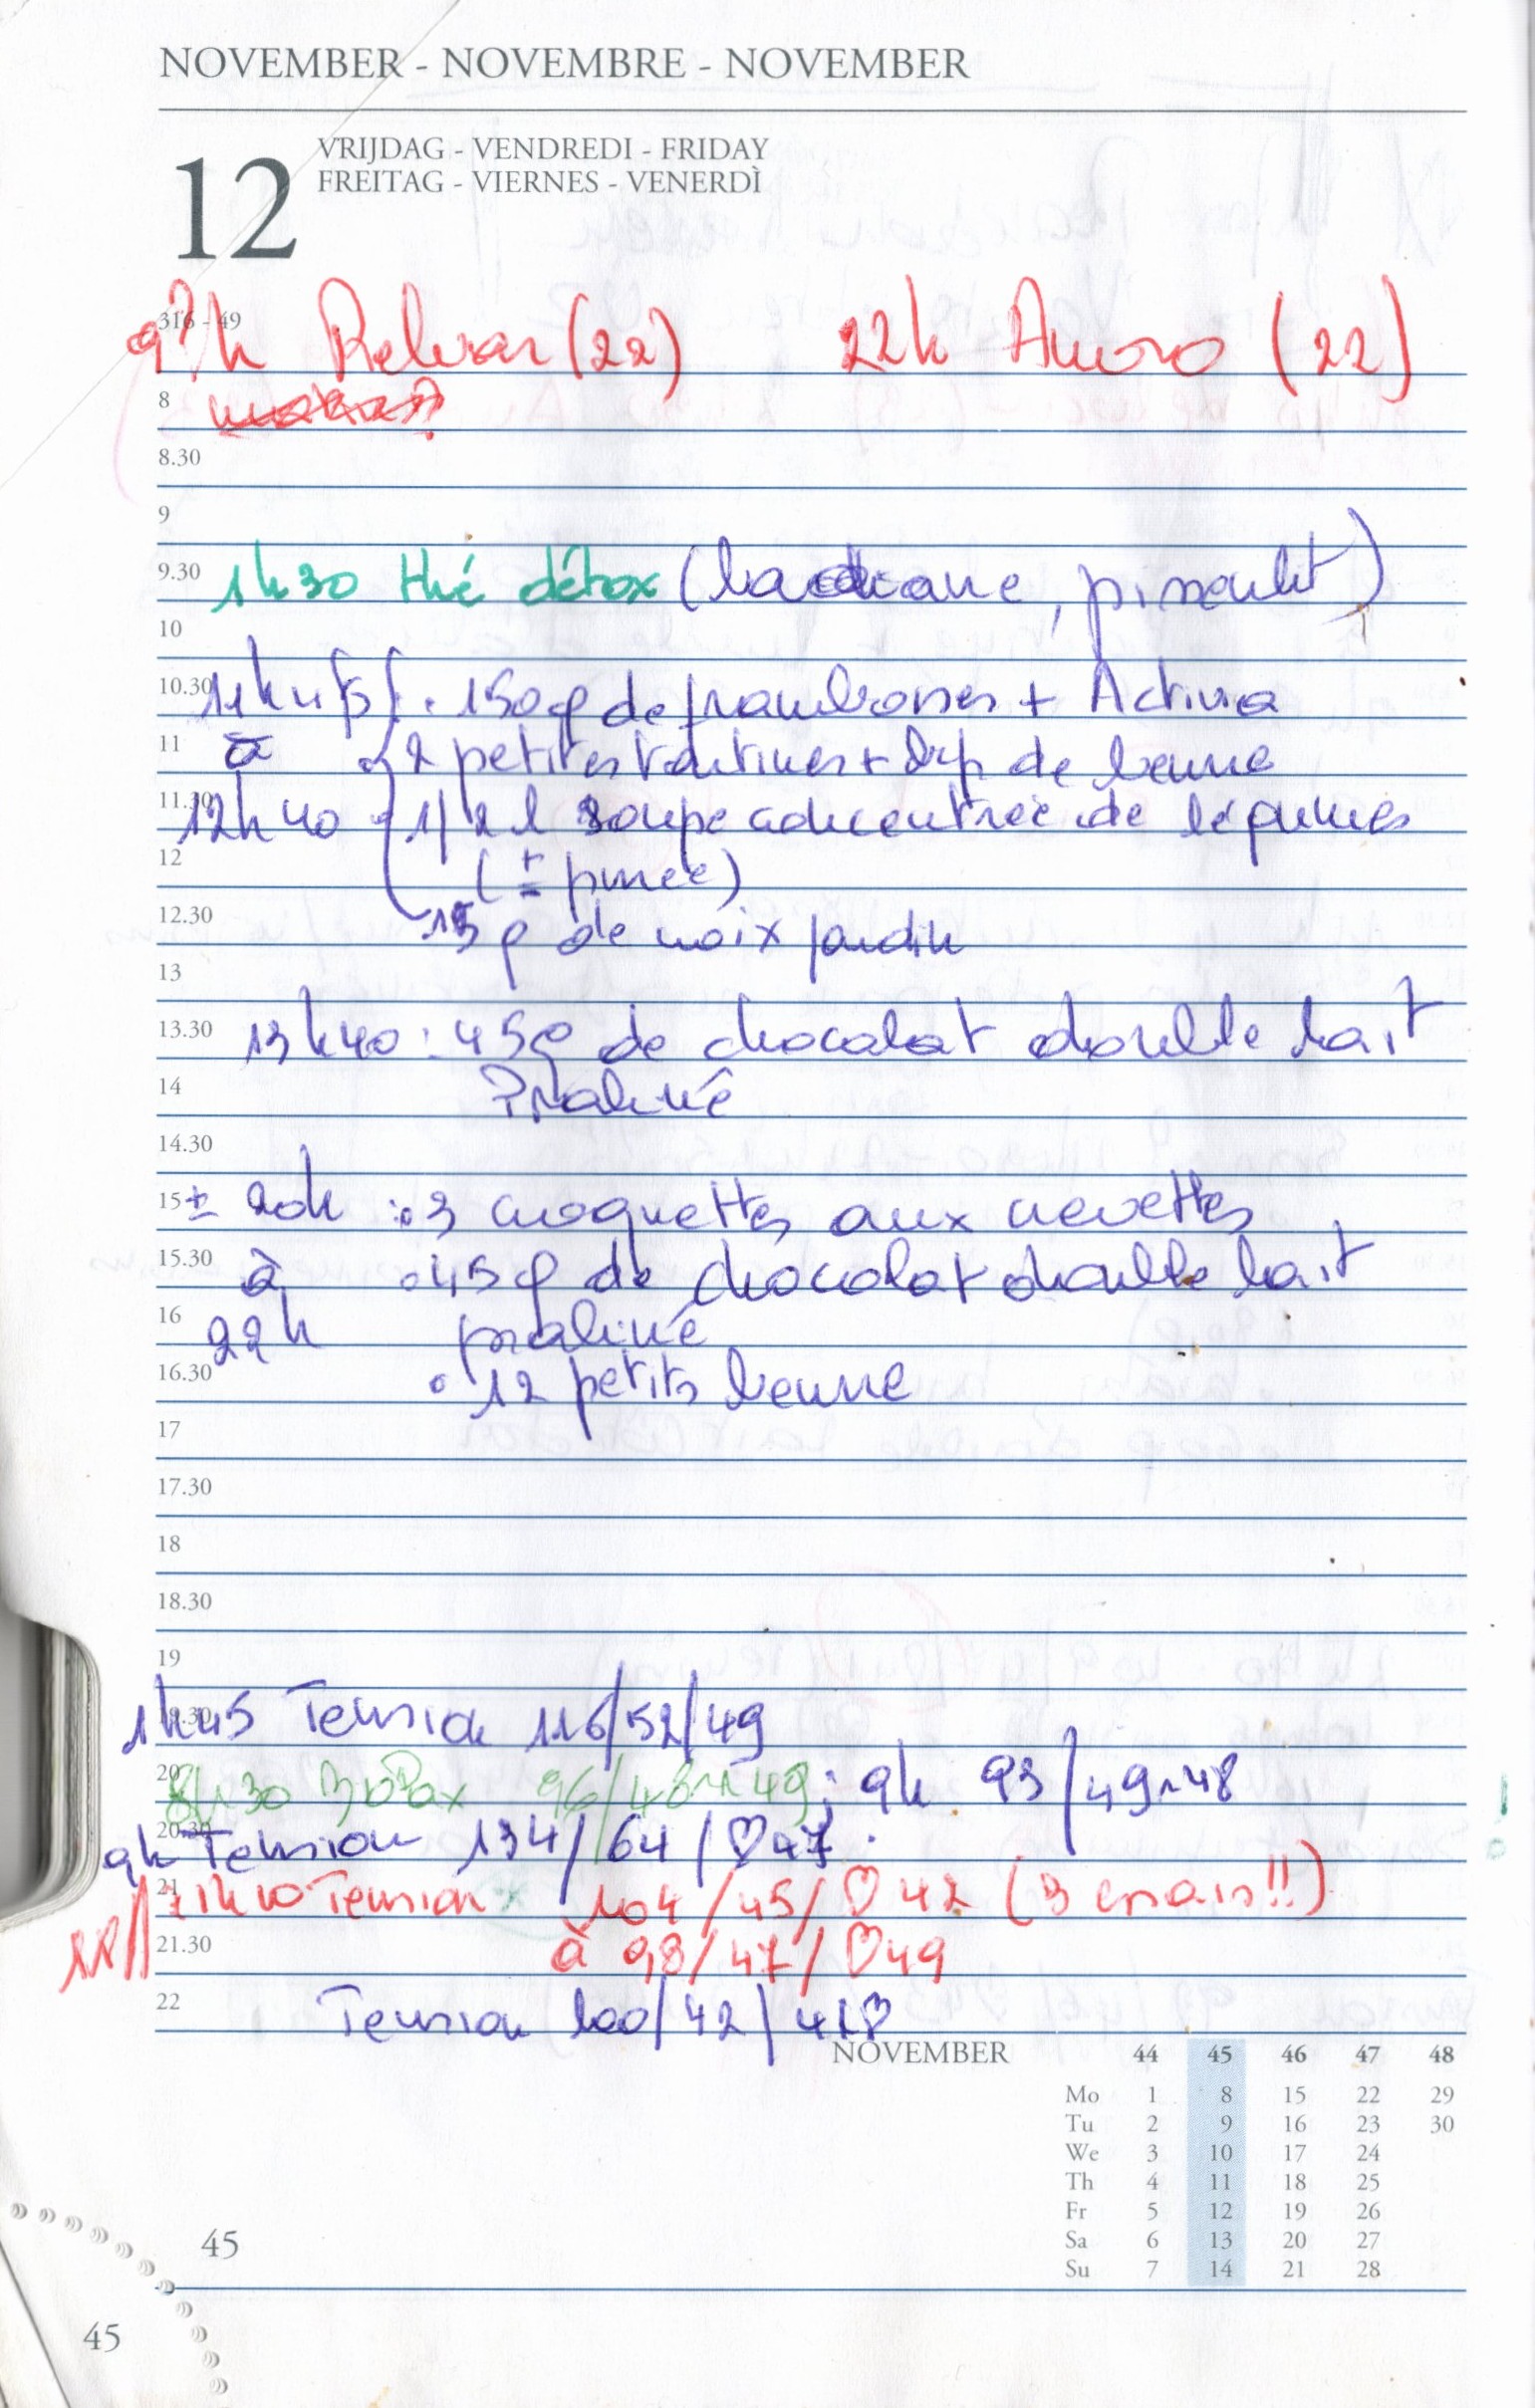 NOVEMBER - NOVEMBRE - NOVEMBER
12
VRIJDAG - VENDREDI - FRIDAY
FREITAG - VIERNES - VENERDÌ
316 - 49
9?h Relvar (22) 22h Amoro (22)
8
8.30
9
9.30 1h30 thé détox (badiane, pissenlit)
10
10.30 11h45 . 150g de framboises + Activia
11 à 2 petites tartines + dép de beurre
11.30 12h40 1/2 l soupe concentrée de légumes
12 (± purée)
12.30 15g de noix jardin
13
13.30 13h40 : 45g de chocolat double lait
14 Praliné
14.30
15 ± 20h : 3 croquettes aux crevettes
15.30 à . 45g de chocolat double lait
16 22h praliné
16.30 . 12 petits beurre
17
17.30
18
18.30
19
19.30 1h45 Tension 116/52/49
20 8h30 96/48 ~ 49 ; 9h 93/49 ~ 48
20.30 9h Tension 134/64/♡47
21 11h10 Tension 104/45/♡42 (3 essais!!)
21.30 à 98/47/♡49
22 Tension 100/42/41♡
NOVEMBER 44 45 46 47 48
Mo 1 8 15 22 29
Tu 2 9 16 23 30
We 3 10 17 24
Th 4 11 18 25
Fr 5 12 19 26
Sa 6 13 20 27
Su 7 14 21 28
45
45